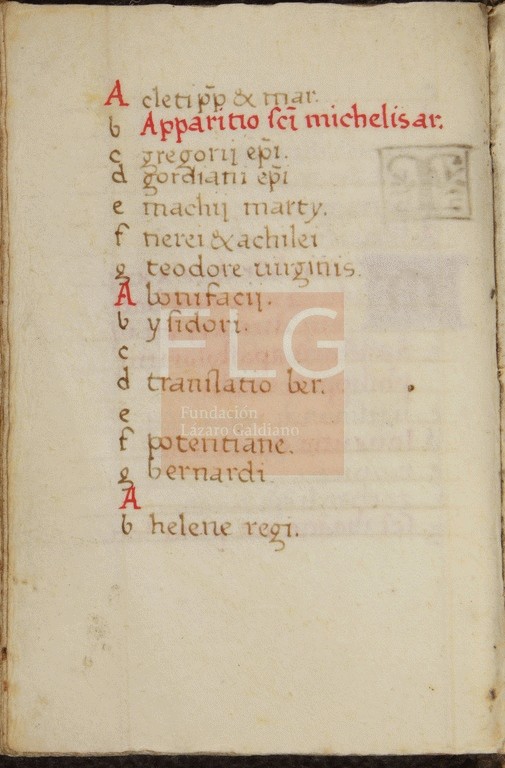 A cleti pp̄ & mar.
b Apparitio sci̅ michelis ar.
c gregorij ep̄i.
d gordiani ep̄i
e machij marty.
f nerei & achilei
g teodore uirginis.
A bonifacij.
b ysidori.
c
d translatio ber.
e
f potentiane.
g bernardi
A
b helene regi.
FLG
Fundación
Lázaro Galdiano